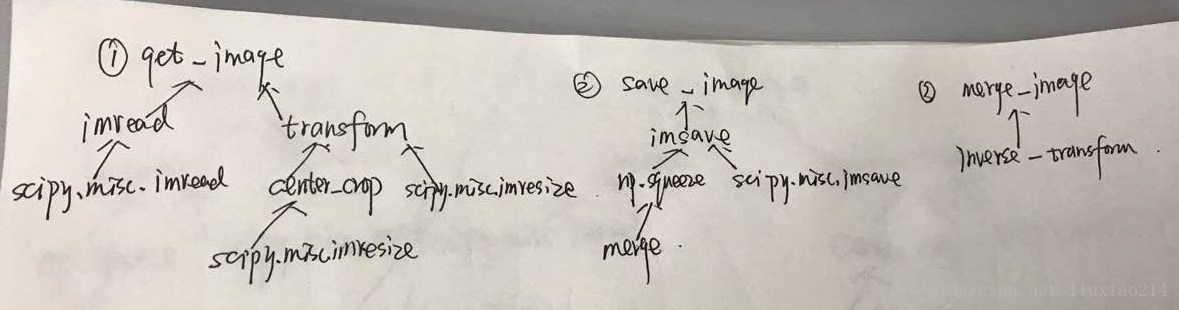 ① get_image
imread
transform
scipy.misc.imread
center_crop
scipy.misc.imresize
scipy.misc.imresize
② save_image
imsave
np.squeeze
scipy.misc.imsave
merge.
② merge_image
inverse_transform.
csdn.net/liuxiao214